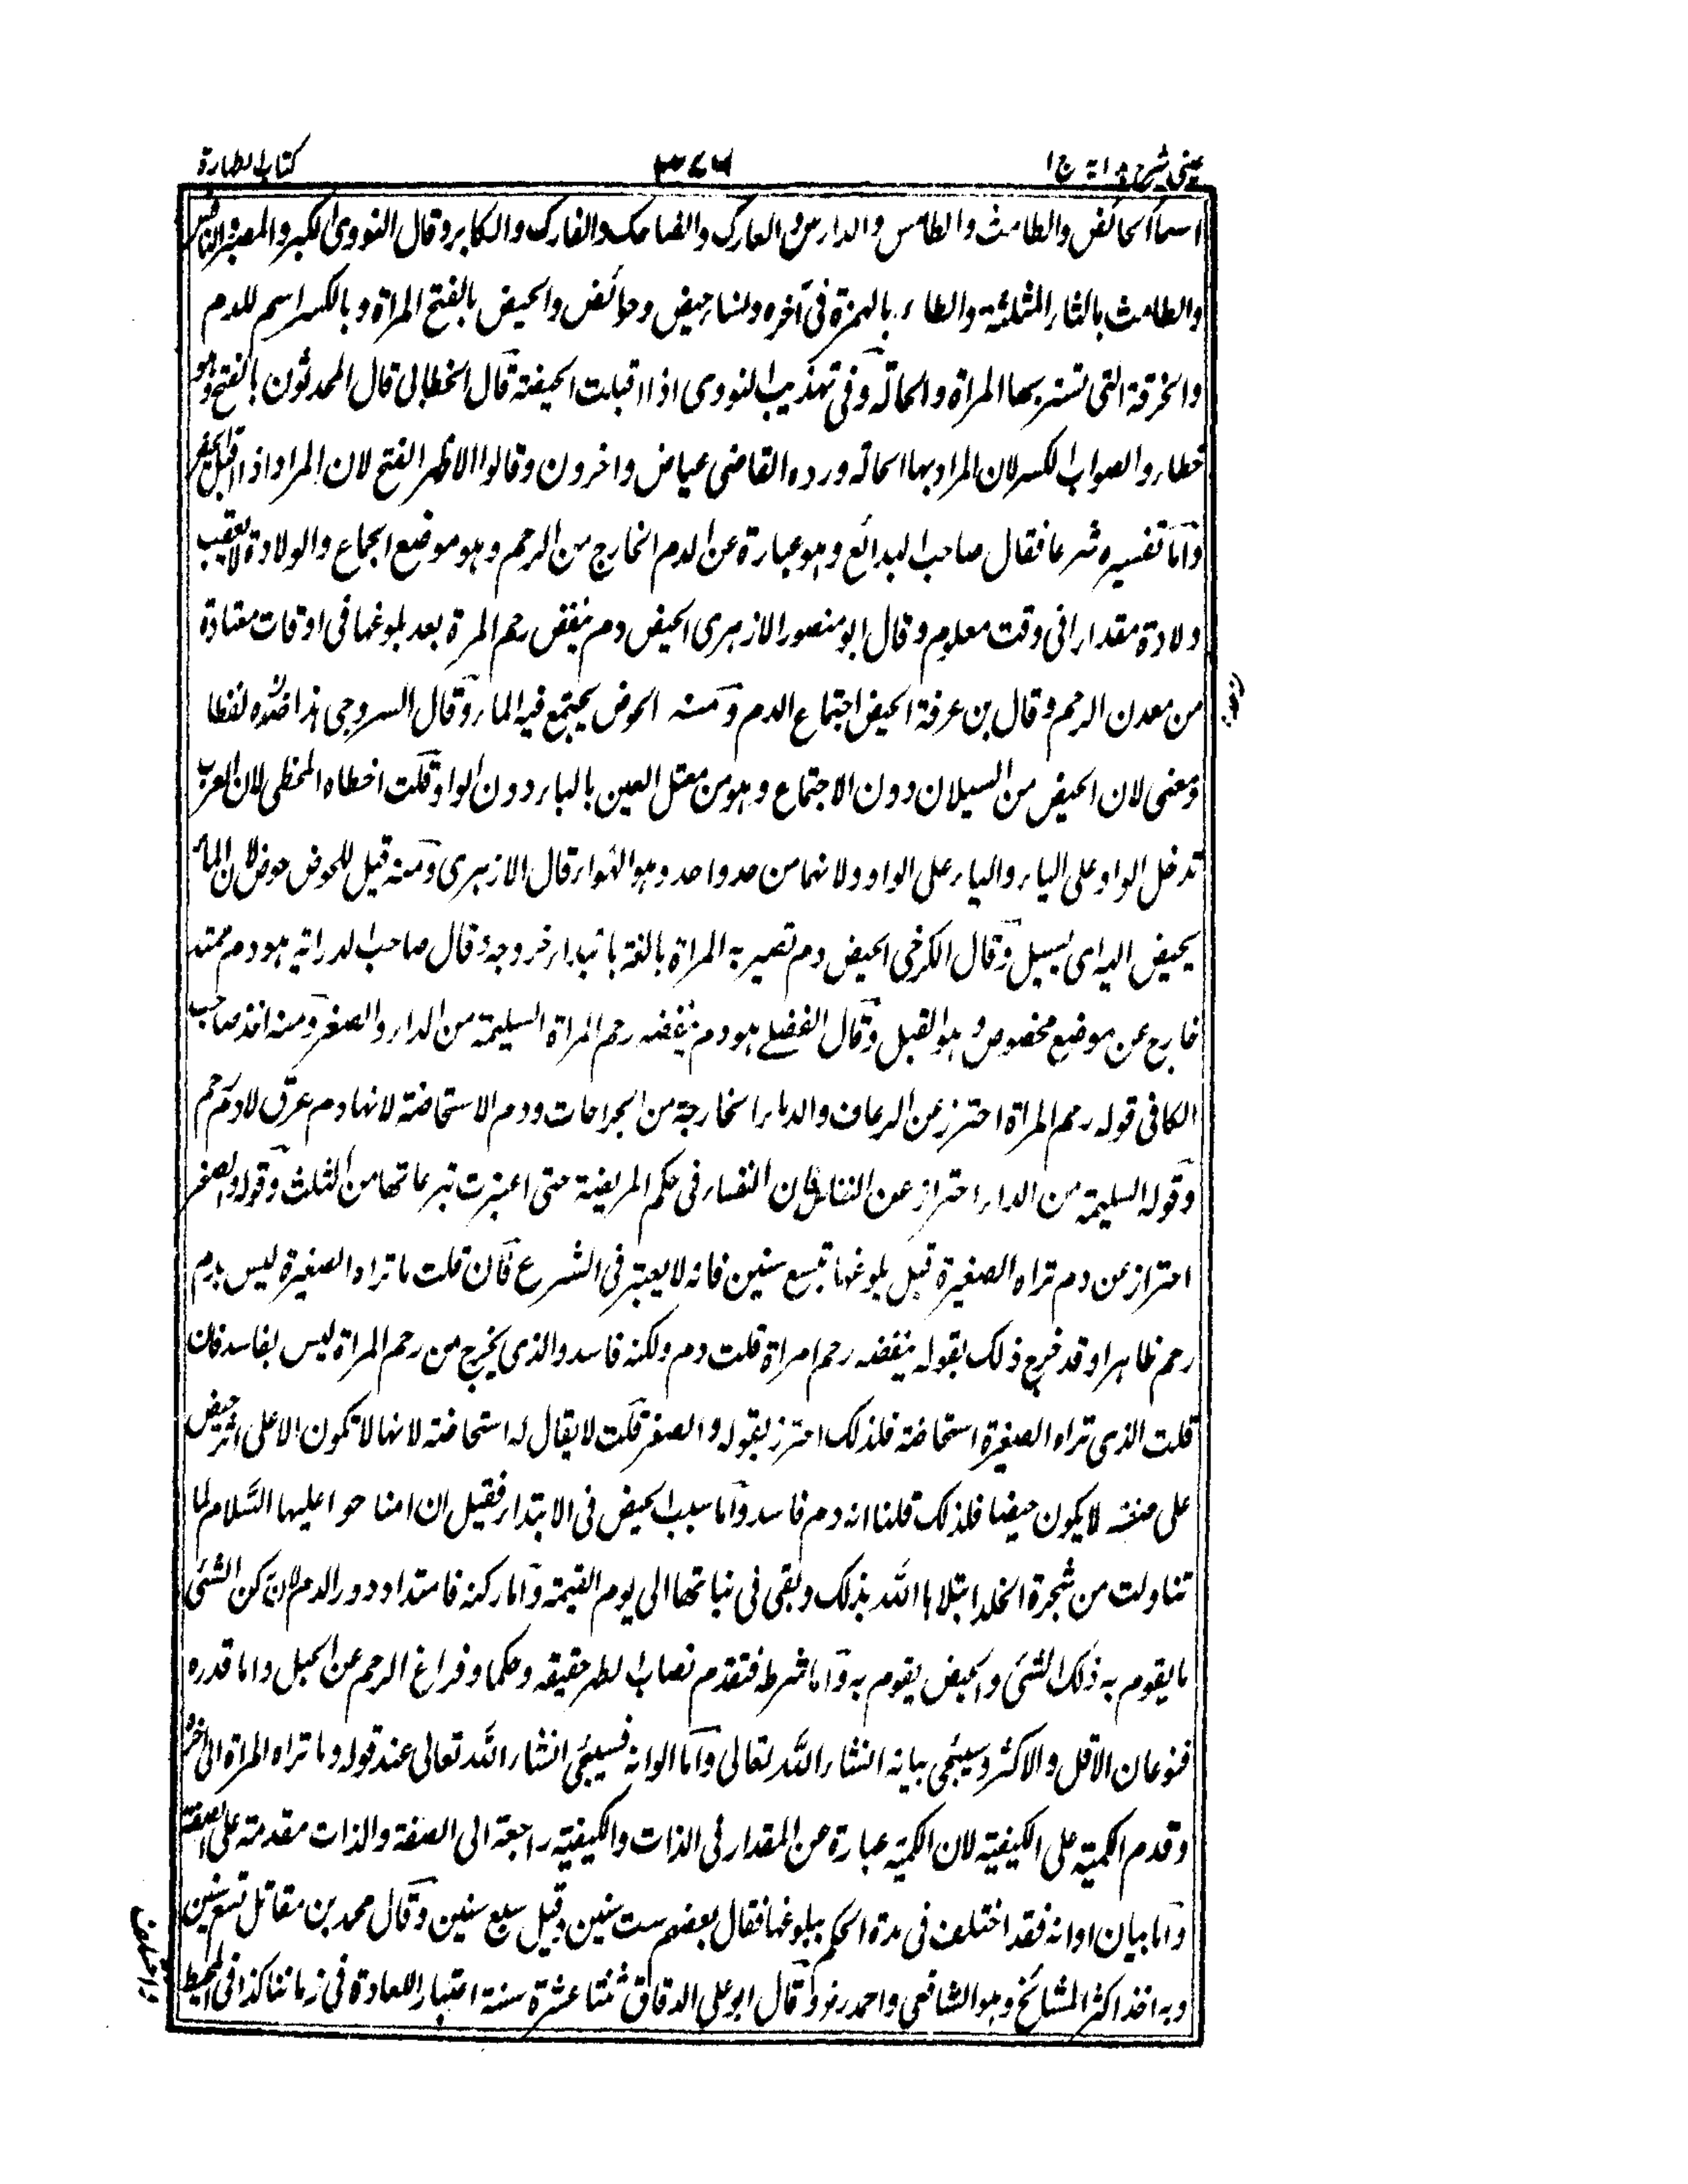 عینی شرح ہدایۃ ج ا
کتاب الطہارۃ
اسماء الحائض والطامث والطامس والدارس والعارک والضاحک والفارک والکابر وقال النووی اکبر والمعصر والنافس
والطامث بالثاء المثلثۃ والطاء بالہمزۃ فی آخرہ ونساء حیض وحوائض والحیض بالفتح المراۃ وبالکسر اسم للدم
والخرقۃ التی تستر بھا المراۃ والحالۃ وفی تہذیب النووی اذا اقبلت الحیضۃ قال الخطابی قال المحدثون بالفتح وہو
خطاء والصواب الکسر لان المراد بہا الحالۃ وردہ القاضی عیاض واخرون وقالوا الاظہر الفتح لان المراد اذا اقبل الحیض
وآما تفسیرہ شرعا فقال صاحب البدائع وہو عبارۃ عن الدم الخارج من الرحم وہو موضع الجماع والولادۃ لا بعقیب
ولادۃ مقدارا فی وقت معلوم وقال ابو منصور الازہری الحیض دم ینفض رحم المرۃ بعد بلوغہا فی اوقات معتادۃ
من معدن الرحم وقال بن عرفۃ الحیض اجتماع الدم ومنہ الحوض یجتمع فیہ الماء وقال السروجی ہذا ضدہ لفظا
ومعنی لان الحیض من السیلان دون الاجتماع وہو من معتل العین بالیاء دون الواو وقلت اخطاہ المخطی لان العرب
تدخل الواو علی الیاء والیاء علی الواو ولانہما من حد واحد وہو الہواء قال الازہری ومنہ قیل للحوض حوض لان الماء
یحیض الیہ ای یسیل وقال الکرخی الحیض دم تصیر بہ المراۃ بالغۃ بابتداء خروجہ وقال صاحب الدرایۃ ہو دم ممتد
خارج عن موضع مخصوص وہو القبل وقال الفضلی ہو دم ینفضہ رحم المراۃ السلیمۃ من الداء والصغر ومنہ اخذ صاحب
الکافی قولہ رحم المراۃ احترز عن الرعاف والدماء الخارجۃ من الجراحات ودم الاستحاضۃ لانہا دم عرق لا دم رحم
وقولہ السلیمۃ من الداء احتراز عن النفاس فان النفساء فی حکم المریضۃ حتی اعتبرت تبرعاتھا من الثلث وقولہ والصغر
احتراز عن دم تراہ الصغیرۃ قبل بلوغہا تسع سنین فانہ لا یعتبر فی الشرع فان قلت ما تراہ الصغیرۃ لیس بدم
رحم ظاہرا وقد خرج ذلک بقولہ ینفضہ رحم امراۃ قلت دم ولکنہ فاسد والذی یخرج من رحم المراۃ لیس بفاسد فان
قلت الذی تراہ الصغیرۃ استحاضۃ فلذلک احترز بقولہ والصغر قلت لا یقال لہ استحاضۃ لانہا لا تکون الا علی اثر حیض
علی صفتہ لا یکون حیضا فلذلک قلنا انہ دم فاسد وآما سبب الحیض فی الابتداء فقیل ان امنا حوا علیہا السلام لما
تناولت من شجرۃ الخلد ابتلاہا اللہ بذلک وبقی فی بناتھا الی یوم القیمۃ وآما رکنہ فامتداد دور الدم لان رکن الشئ
ما یقوم بہ ذلک الشئ والحیض یقوم بہ وآما شرطہ فتقدم نصاب الطہر حقیقہ وحکما وفراغ الرحم عن الحبل واما قدرہ
فنوعان الاقل والاکثر وسیجئ بیانہ انشاء اللہ تعالی وآما الوانہ فسیجئ انشاء اللہ تعالی عند قولہ وما تراہ المراۃ الی اخرہ
وقدم الکمیۃ علی الکیفیۃ لان الکمیۃ عبارۃ عن المقدار فی الذات والکیفیۃ راجعۃ الی الصفۃ والذات مقدمۃ علی الصفۃ
وآما بیان اوانہ فقد اختلف فی مدۃ الحکم ببلوغہا فقال بعضہم ست سنین وقیل سبع سنین وقال محمد بن مقاتل تسع سنین
وبہ اخذ اکثر المشائخ وہو الشافعی واحمد رہ وقال ابو علی الدقاق ثنتا عشرۃ سنۃ اعتبارا للعادۃ فی زماننا کذا فی المحیط